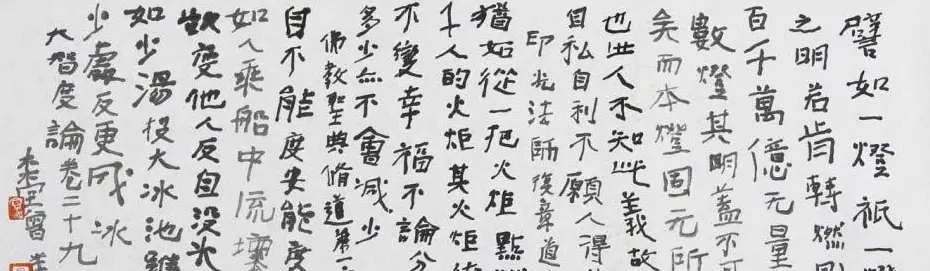 譬如一燈祇一燈
之明若肯轉燃則
百千萬億无量
數燈其明蓋不可
矣而本燈固无所
也世人不知此義故
自私自利不願人得
印光法師復章道
猶如從一把火炬點燃
千人的火炬其火炬依
不變幸福不論分
多少亦不會減少
佛教聖典脩道第一
自不能度安能度
如人乘船中流壞
欲度他人反自沒
如少湯投大冰池雖
少處反更成冰
大智度論卷二十九